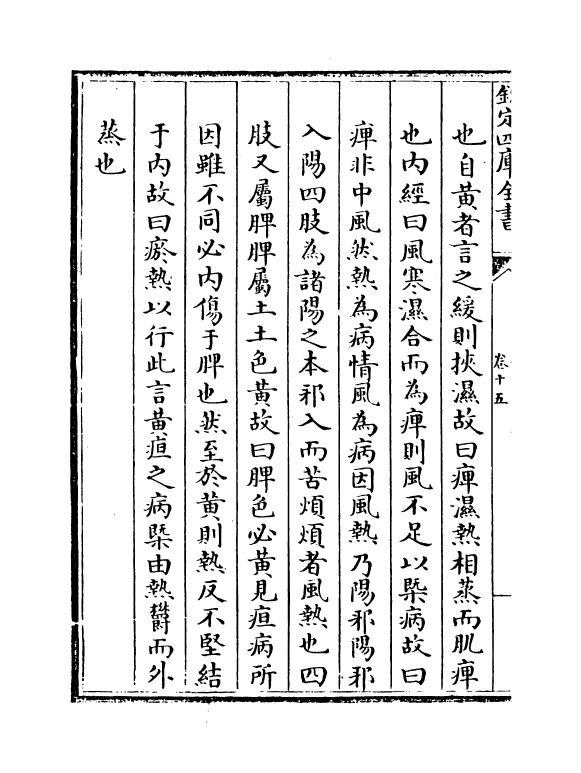 欽定四庫全書
卷十五
也自黃者言之緩則挾濕故曰痺濕熱相蒸而肌痺
也内經曰風寒濕合而為痺則風不足以槩病故曰
痺非中風然熱為病情風為病因風熱乃陽邪陽邪
入陽四肢為諸陽之本邪入而苦煩煩者風熱也四
肢又屬脾脾屬土土色黃故曰脾色必黃見疸病所
因雖不同必内傷于脾也然至於黃則熱反不堅結
于内故曰瘀熱以行此言黃疸之病槩由熱欝而外
蒸也